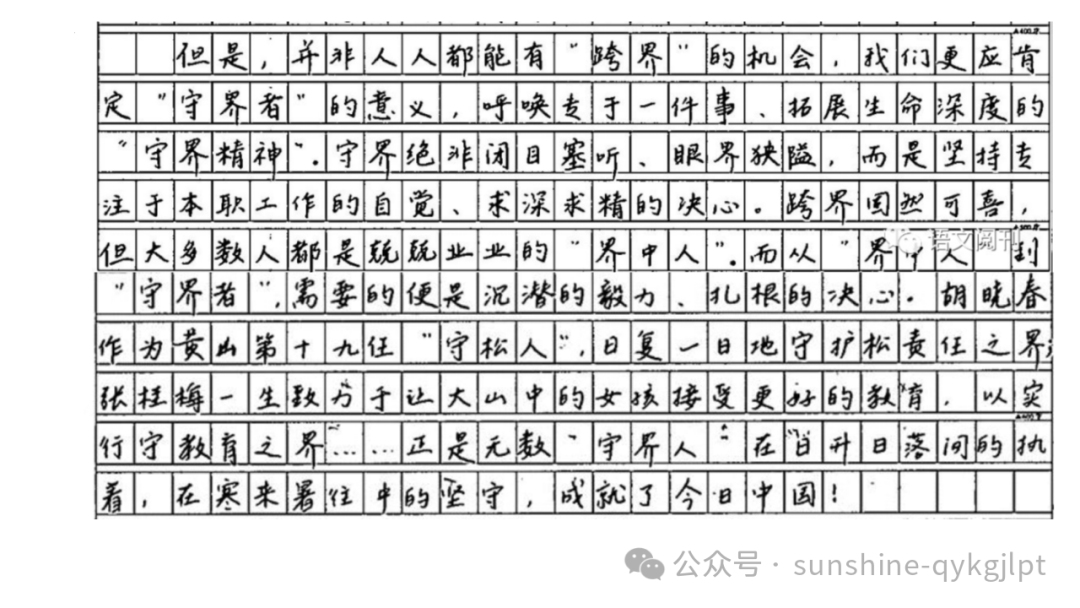 但是，并非人人都能有“跨界”的机会，我们更应肯
定“守界者”的意义，呼唤专于一件事、拓展生命深度的
“守界精神”。守界绝非闭目塞听、眼界狭隘，而是坚持专
注于本职工作的自觉、求深求精的决心。跨界固然可喜，
但大多数人都是兢兢业业的“界中人”。而从“界中人”到
“守界者”，需要的便是沉潜的毅力、扎根的决心。胡晓春
作为黄山第十九任“守松人”，日复一日地守护松责任之界；
张桂梅一生致力于让大山中的女孩接受更好的教育，以实
行守教育之界……正是无数“守界人”在日升日落间的执
着，在寒来暑往中的坚守，成就了今日中国！
语文阅刊
公众号 · sunshine-qykgjlpt